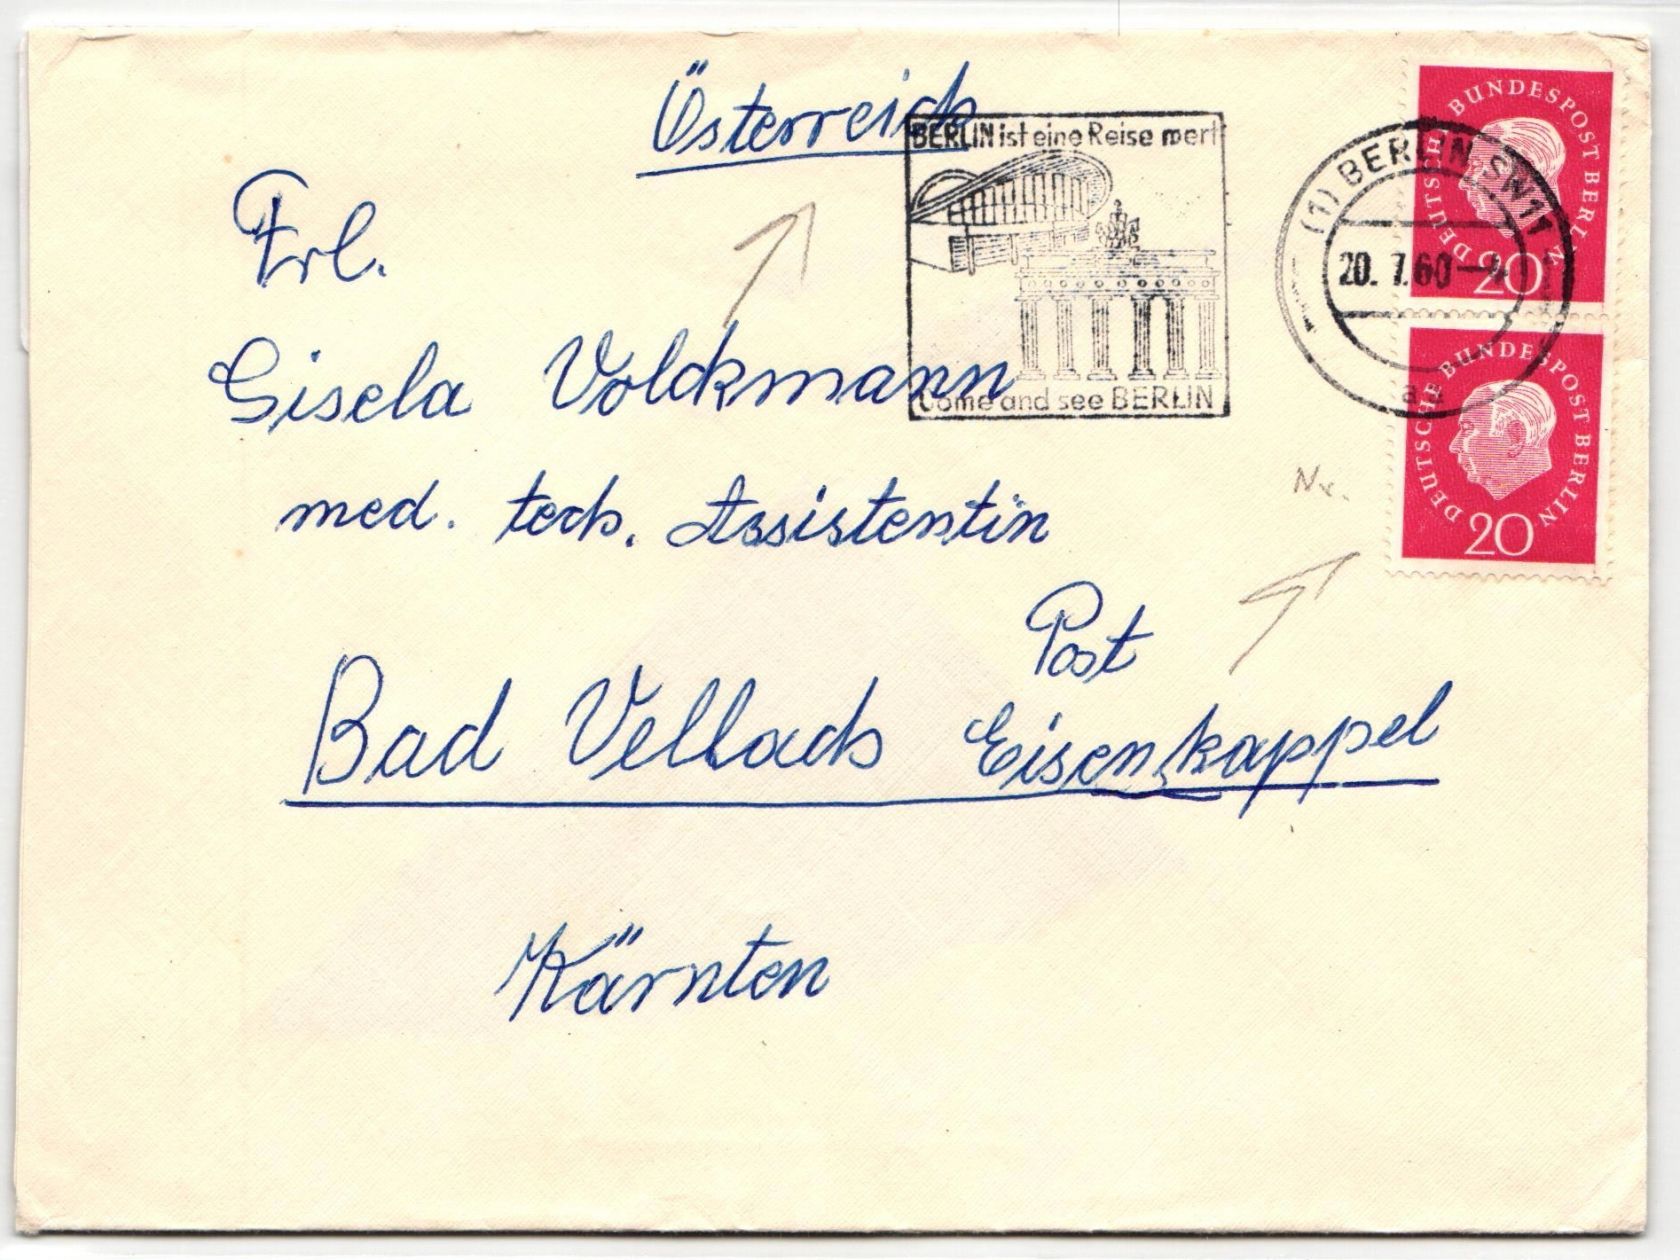 Österreich
BERLIN ist eine Reise wert
come and see BERLIN
(1) BERLIN SW 11
20. 7. 60 - 
au
DEUTSCHE BUNDESPOST BERLIN
20
DEUTSCHE BUNDESPOST BERLIN
20
Frl.
Gisela Volckmann
med. tech. Assistentin
Nr.
Post
Bad Vellach Eisenkappel
Kärnten